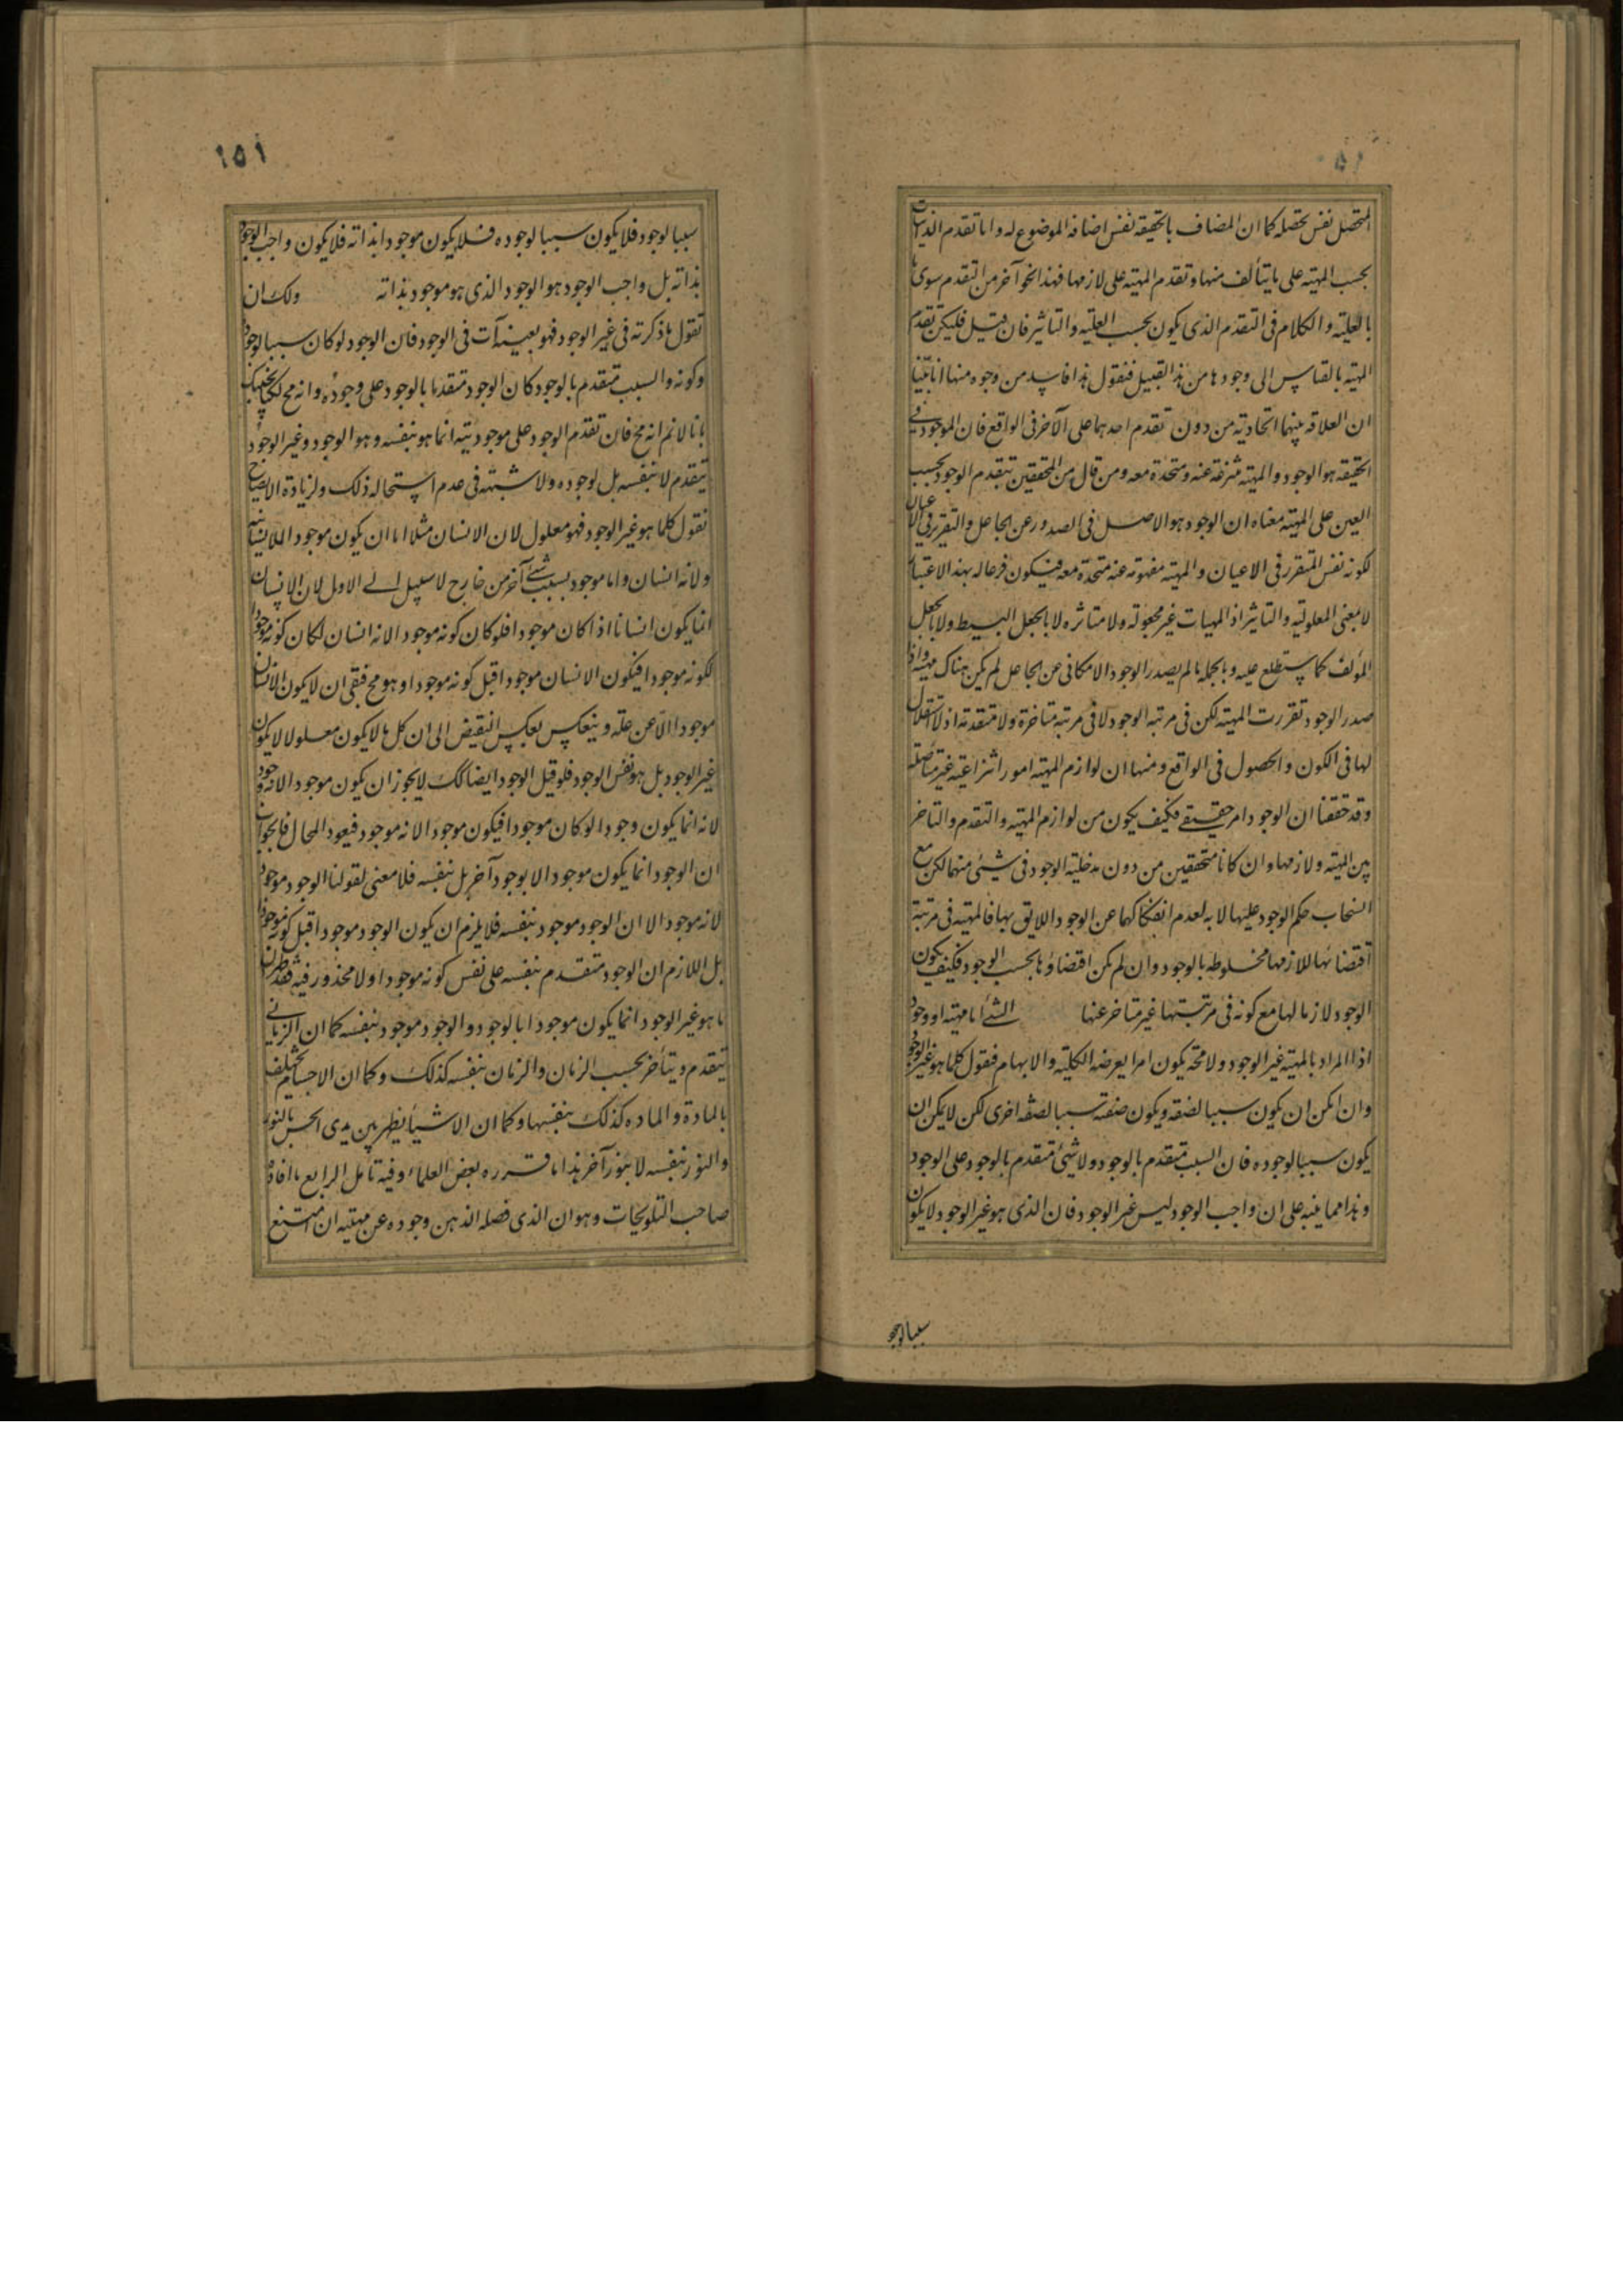 المتحصل نفس تحصله كما ان المضاف بالحقيقة نفس اضافة الموضوع له واما تقدم الذاتيات
بحسب المهية على ما يتألف منها وتقدم المهية على لازمها فهذا نحو آخر من التقدم سوى ما
بالعلية والكلام في التقدم الذي يكون بحسب العلية والتاثير فان قيل فليكن تقدم
المهية بالقياس الى وجودها من هذا القبيل فنقول هذا فاسد من وجوه منها انا بيّنا
ان العلاقة بينهما اتحادية من دون تقدم احدهما على الآخر في الواقع فان الموجود في
الحقيقة هو الوجود والمهية منتزعة عنه ومتحدة معه ومن قال من المحققين بتقدم الوجود بحسب
العين على المهية معناه ان الوجود هو الاصل في الصدور عن الجاعل والتقرر في الاعيان
لكونه نفس المتقرر في الاعيان والمهية مفهومة عنه متحدة معه فيكون فرعا له بهذا الاعتبار
لا بمعنى المعلولية والتاثير اذ المهيات غير مجعولة ولا متاثرة لا بالجعل البسيط ولا بالجعل
المؤلف كما ستطلع عليه وبالجملة ما لم يصدر الوجود الامكاني عن الجاعل لم يكن هناك مهية واذا
صدر الوجود تقررت المهية لكن في مرتبة الوجود لا في مرتبة متاخرة ولا متقدمة اذ لا استقلال
لها في الكون والحصول في الواقع ومنها ان لوازم المهية امور انتزاعية غير متأصلة
وقد حققنا ان الوجود امر حقيقي فكيف يكون من لوازم المهية والتقدم والتاخر
بين المهية ولازمها وان كانا متحققين من دون مدخلية الوجود في شيئ منهما لكن مع
انسحاب حكم الوجود عليهما لا به لعدم انفكاكهما عن الوجود اللايق بهما فالمهية في مرتبة
اقتضائها للازمها مخلوطة بالوجود وان لم يكن اقتضاؤها بحسب الوجود فكيف يكون
الوجود لازما لها مع كونه في مرتبتها غير متاخر عنها الشئ اما مهية او وجود
اذ المراد بالمهية غير الوجود ولا محة يكون امرا يعرضه الكلية والابهام فنقول كلما هو غير الوجود
وان امكن ان يكون سببا لصفة ويكون صفته سببا لصفة اخرى لكن لا يمكن ان
يكون سببا لوجوده فان السبب متقدم بالوجود ولا شيئ متقدم بالوجود على الوجود
وهذا مما ينبه على ان واجب الوجود ليس غير الوجود فان الذي هو غير الوجود لا يكون
سببا لوجو
١٥١
سببا لوجود فلا يكون سببا لوجوده فلا يكون موجودا بذاته فلا يكون واجب الوجود
بذاته بل واجب الوجود هو الوجود الذي هو موجود بذاته ولك ان
تقول ما ذكرته في غير الوجود فهو بعينه آت في الوجود فان الوجود لو كان سببا لوجود
وكونه والسبب متقدم بالوجود كان الوجود متقدما بالوجود على وجوده وانه مح لكنا نجيبك
بانا لا نم انه مح فان تقدم الوجود على موجوديته انما هو بنفسه وهو الوجود وغير الوجود
يتقدم لا بنفسه بل لوجوده ولا شبهة في عدم استحالة ذلك ولزيادة الايضاح
نقول كلما هو غير الوجود فهو معلول لان الانسان مثلا اما ان يكون موجودا للانسانية
ولانه انسان واما موجود بسبب شئ آخر من خارج لا سبيل الى الاول لان الانسان
انما يكون انسانا اذا كان موجودا فلو كان كونه موجودا لانه انسان لكان كونه موجودا
لكونه موجودا فيكون الانسان موجودا قبل كونه موجودا وهو مح فبقي ان لا يكون الانسان
موجودا الا عن علة وينعكس بعكس النقيض الى ان كل ما لا يكون معلولا لا يكون
غير الوجود بل هو نفس الوجود فلو قيل الوجود ايضا كك لا يجوز ان يكون موجودا لانه وجود
لانه انما يكون وجودا لو كان موجودا فيكون موجودا لانه موجود فيعود المحال فالجواب
ان الوجود انما يكون موجودا لا بوجود آخر بل بنفسه فلا معنى لقولنا الوجود موجود
لانه موجود الا ان الوجود موجود بنفسه فلا يلزم ان يكون الوجود موجودا قبل كونه موجودا
بل اللازم ان الوجود متقدم بنفسه على نفس كونه موجودا ولا محذور فيه فقد ظهر ان
ما هو غير الوجود انما يكون موجودا بالوجود والوجود موجود بنفسه كما ان الزماني
يتقدم ويتأخر بحسب الزمان والزمان بنفسه كذلك وكما ان الاجسام تختلف
بالمادة والمادة كذلك بنفسها وكما ان الاشياء يظهر بين يدي الحس بالنور
والنور بنفسه لا بنور آخر هذا ما قرره بعض العلماء وفيه تأمل الرابع ما افاده
صاحب التلويحات وهو ان الذي فصله الذهن وجوده عن مهيته ان امتنع